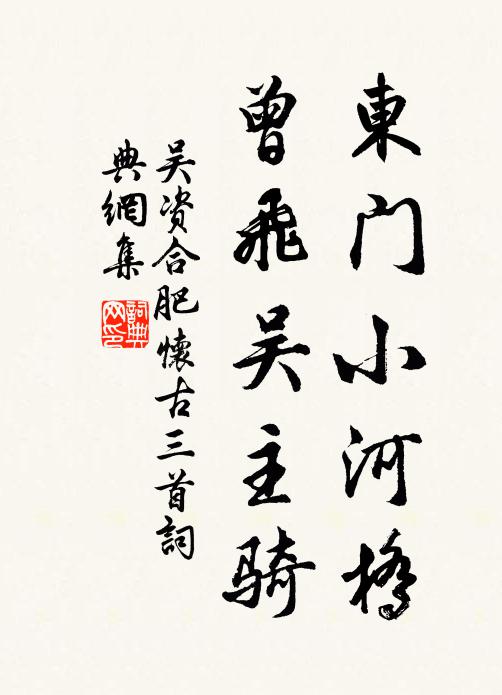 東门小河橋
曾飛吴主骑
吴资合肥懷古三首詞
典網集
詞典网印